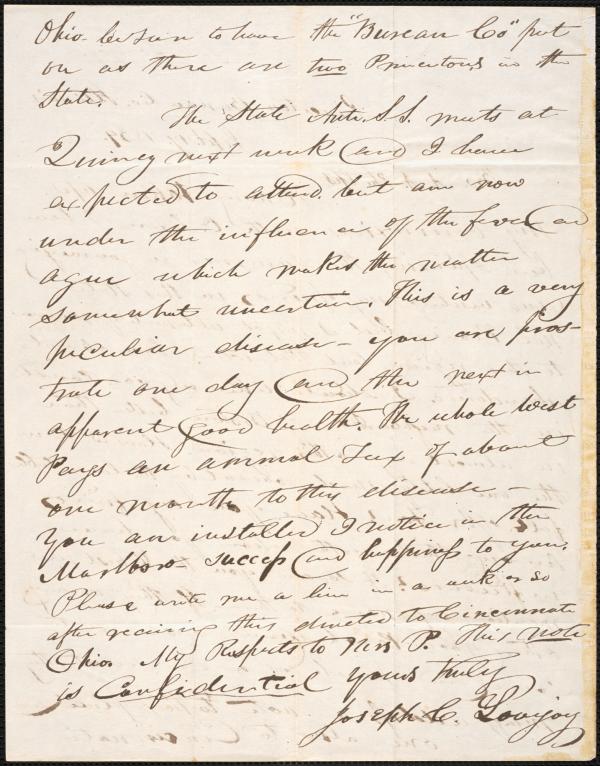 Ohio. be sure to have the "Bureau Co" put
on as there are two Princetons in the
State.
The State Anti. S.S. meets at
Quincy next week and I have
expected to attend, but am now
under the influence of the fever and
ague which makes the matter
somewhat uncertain. This is a very
peculiar disease - you are pros-
trate one day and the next in
apparent good health. The whole West
Pays an annual Tax of about
one month to this disease -
You are installed I notice in the
Marlboro - success and happiness to you.
Please write me a line in a week or so
after receiving this directed to Cincinnati
Ohio. My Respects to Mrs P. This note
is Confidential yours truly
Joseph C. Lovejoy